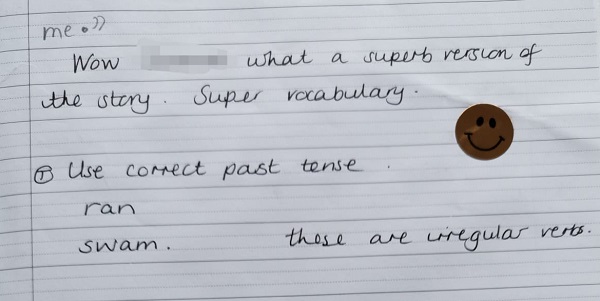 me.”
Wow what a superb version of
the story. Super vocabulary.
Ⓣ Use correct past tense.
ran
swam. these are irregular verbs.